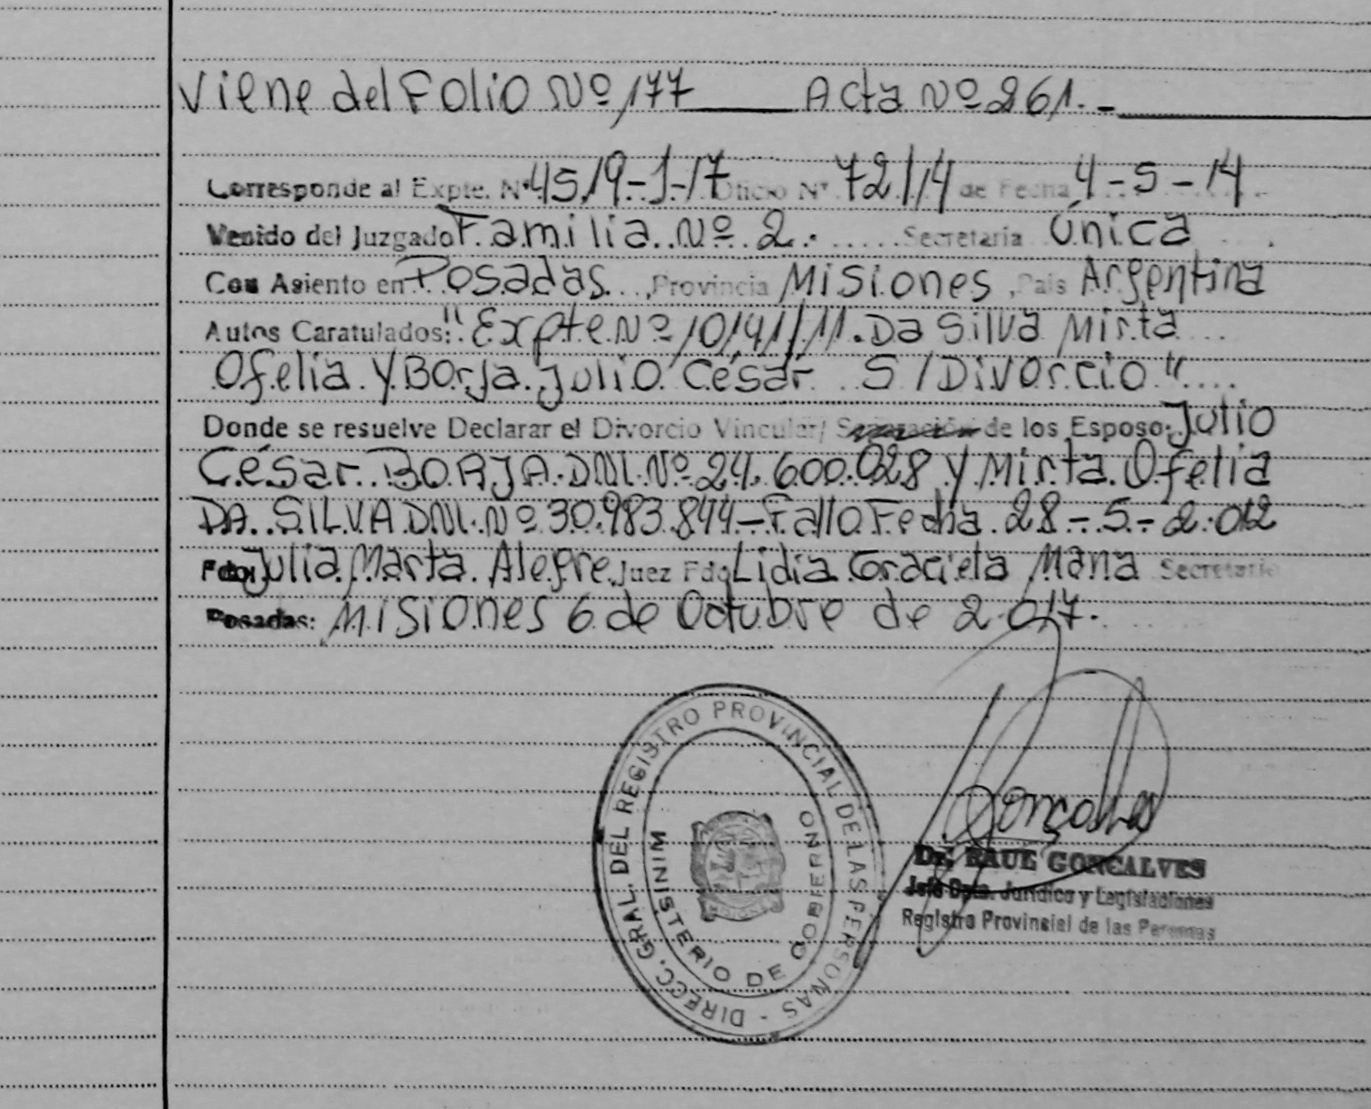 Viene del Folio Nº 177 Acta Nº 261.-
Corresponde al Expte. Nº 4519-J-17 Oficio Nº 72/14 de Fecha 4-5-14
Venido del Juzgado Familia Nº 2. Secretaria Única
Con Asiento en Posadas, Provincia Misiones, Pais Argentina
Autos Caratulados: "Expte Nº 10141/11. Da Silva Mirta
Ofelia Y Borja Julio César S/Divorcio"
Donde se resuelve Declarar el Divorcio Vincular/ Separación de los Esposo: Julio
César BORJA DNI Nº 24.600.028 y Mirta Ofelia
DA SILVA DNI Nº 30.983.844- Fallo Fecha 28-5-2.012
Fdo: Julia Marta Alegre Juez Fdo Lidia Graciela Mana Secretario
Posadas: Misiones 6 de Octubre de 2.017.
DIRECC. GRAL. DEL REGISTRO PROVINCIAL DE LAS PERSONAS -
MINISTERIO DE GOBIERNO
Goncalves
Dr. RAUL GONCALVES
Jefe Dpto. Jurídico y Legislaciones
Registro Provincial de las Personas